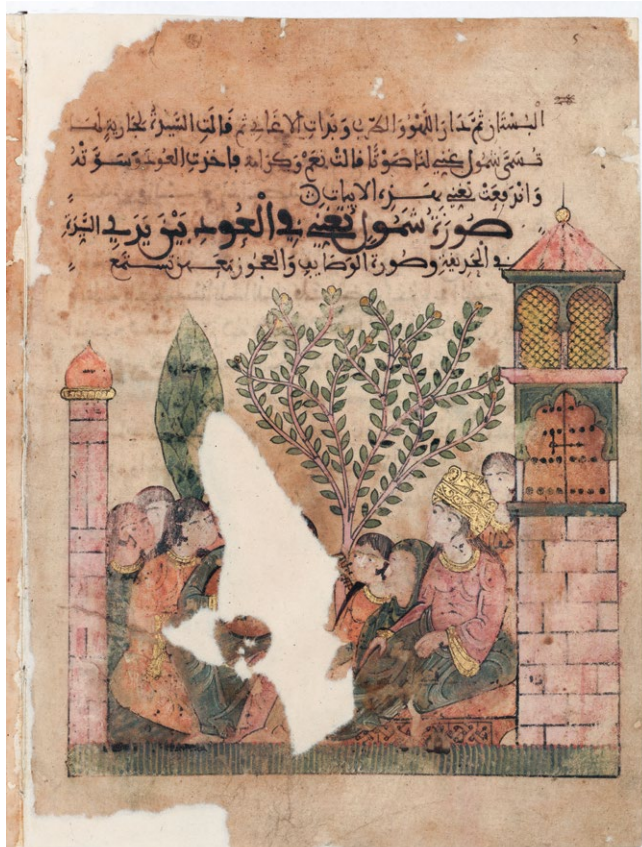 البستان ثم دار اللهو والطرب وبدات الاغاني ثم قالت السيدة لجارية لها
تسمى شمول غني لنا صوتا قالت نعم وكرامة فاخذت العود وسوته
واندفعت تغني بهذه الابيات
صورة شمول تغني في العود بين يدي السيدة
في الحديقة وصورة الوصايف والعجوز معهن تستمع